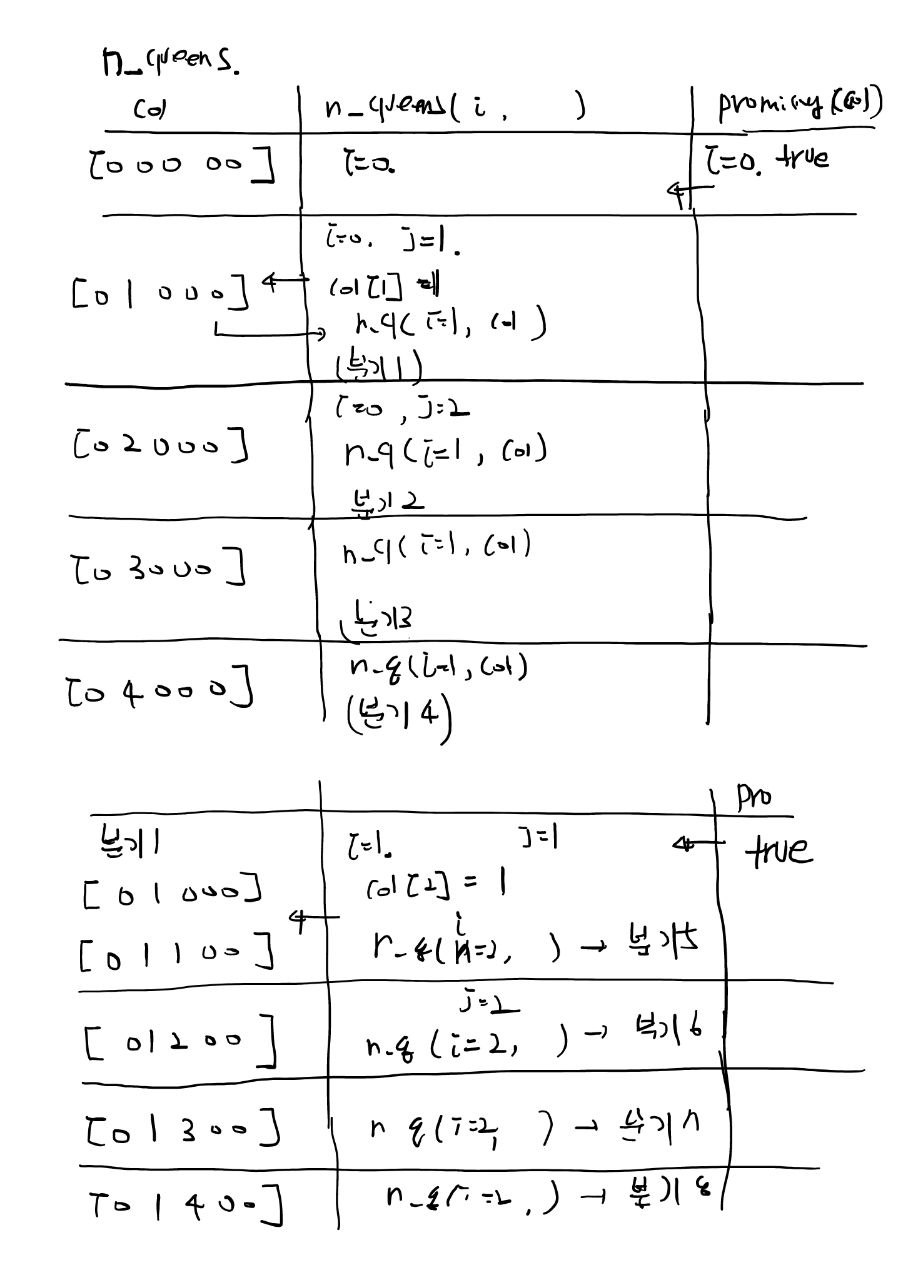 n_queens.
col n_queens(i, ) promising(col)
[0 0 0 0 0] i=0. i=0. true
i=0. j=1.
[0 1 0 0 0] col[1] =1
n_q(i=1, col)
(분기1)
i=0, j=2
[0 2 0 0 0] n_q(i=1, col)
분기2
[0 3 0 0 0] n_q(i=1, col)
(분기3
[0 4 0 0 0] n_q(i=1, col)
(분기4)
pro
분기1 i=1. j=1 true
[0 1 0 0 0] col[2] = 1
i
[0 1 1 0 0] n_q(n=2, ) → 분기5
j=2
[0 1 2 0 0] n_q(i=2, ) → 분기6
[0 1 3 0 0] n q(i=2, ) → 분기7
[0 1 4 0 0] n_q(i=2, ) → 분기8